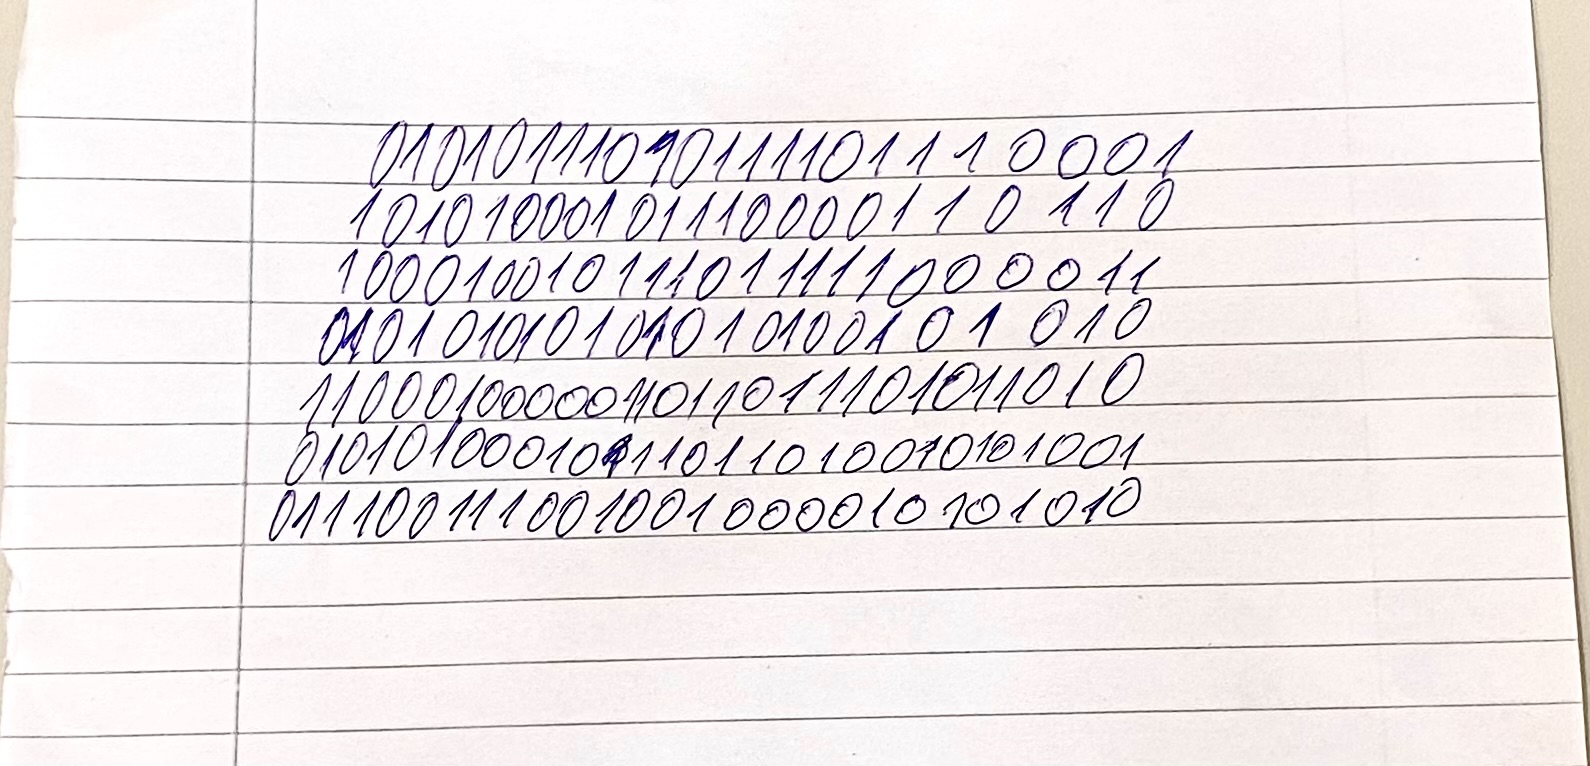 010101110101111011110001
1010100010111000011 0 110
10001001011101111100 0 011
010101010101010100101 010
1100010000011011011101011010
0101010001011101101001010 1001
01110011100100100001010 1010